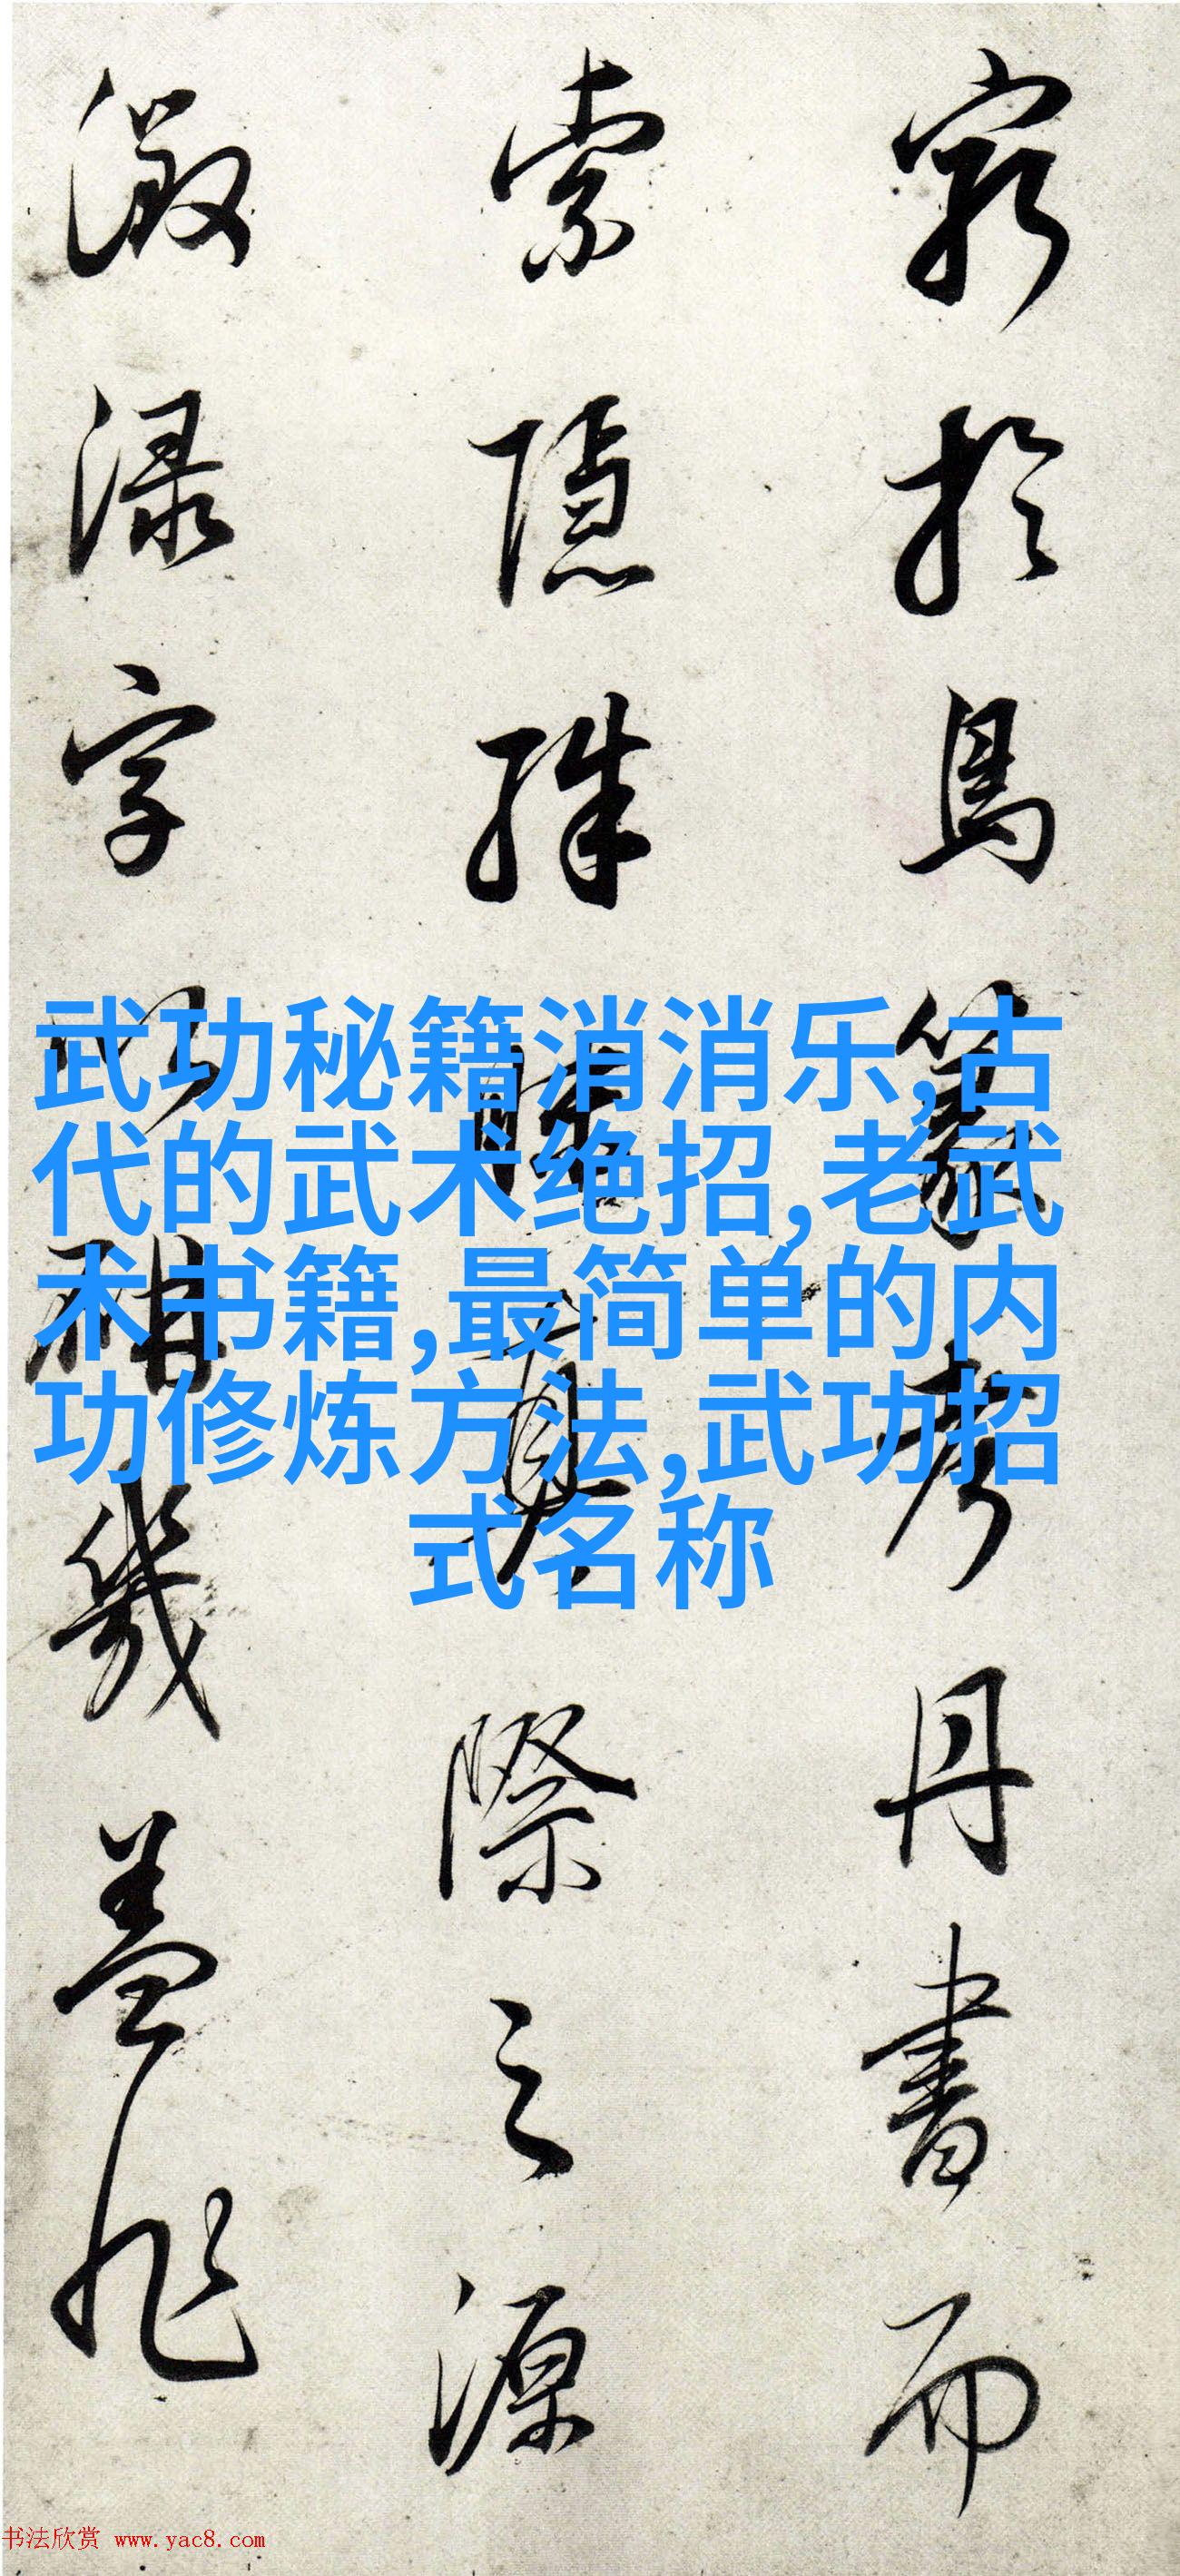 窮於鳥篆考丹書而
索隱殊昧真際之源
渌字幾蓋非
武功秘籍消消乐,古
代的武术绝招,老武
术书籍,最简单的内
功修炼方法,武功招
式名称
书法欣赏 www.yac8.com